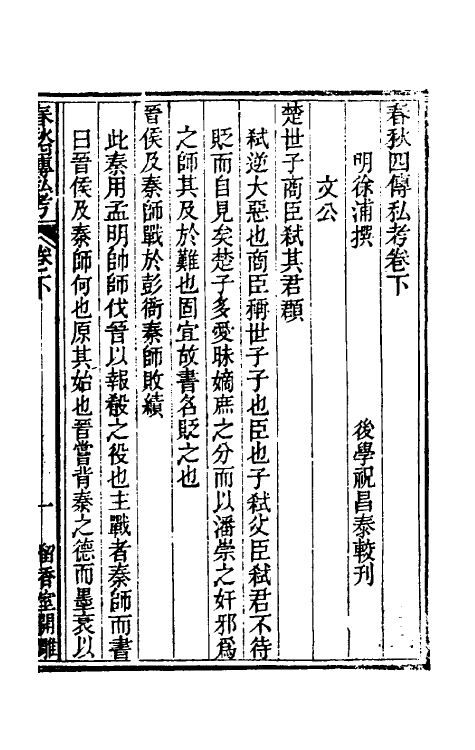 春秋四傳私考卷下
明徐浦撰　後學祝昌泰較刊
文公
楚世子商臣弒其君頵
弒逆大惡也商臣稱世子子也臣也子弒父臣弒君不待
貶而自見矣楚子多愛昧嫡庶之分而以潘崇之奸邪爲
之師其及於難也固宜故書名貶之也
晉侯及秦師戰於彭衙秦師敗績
此秦用孟明帥師伐晉以報殽之役也主戰者秦師而書
曰晉侯及秦師何也原其始也晉嘗背秦之德而墨衰以
春秋四傳私考　卷之下　一　留香室開雕